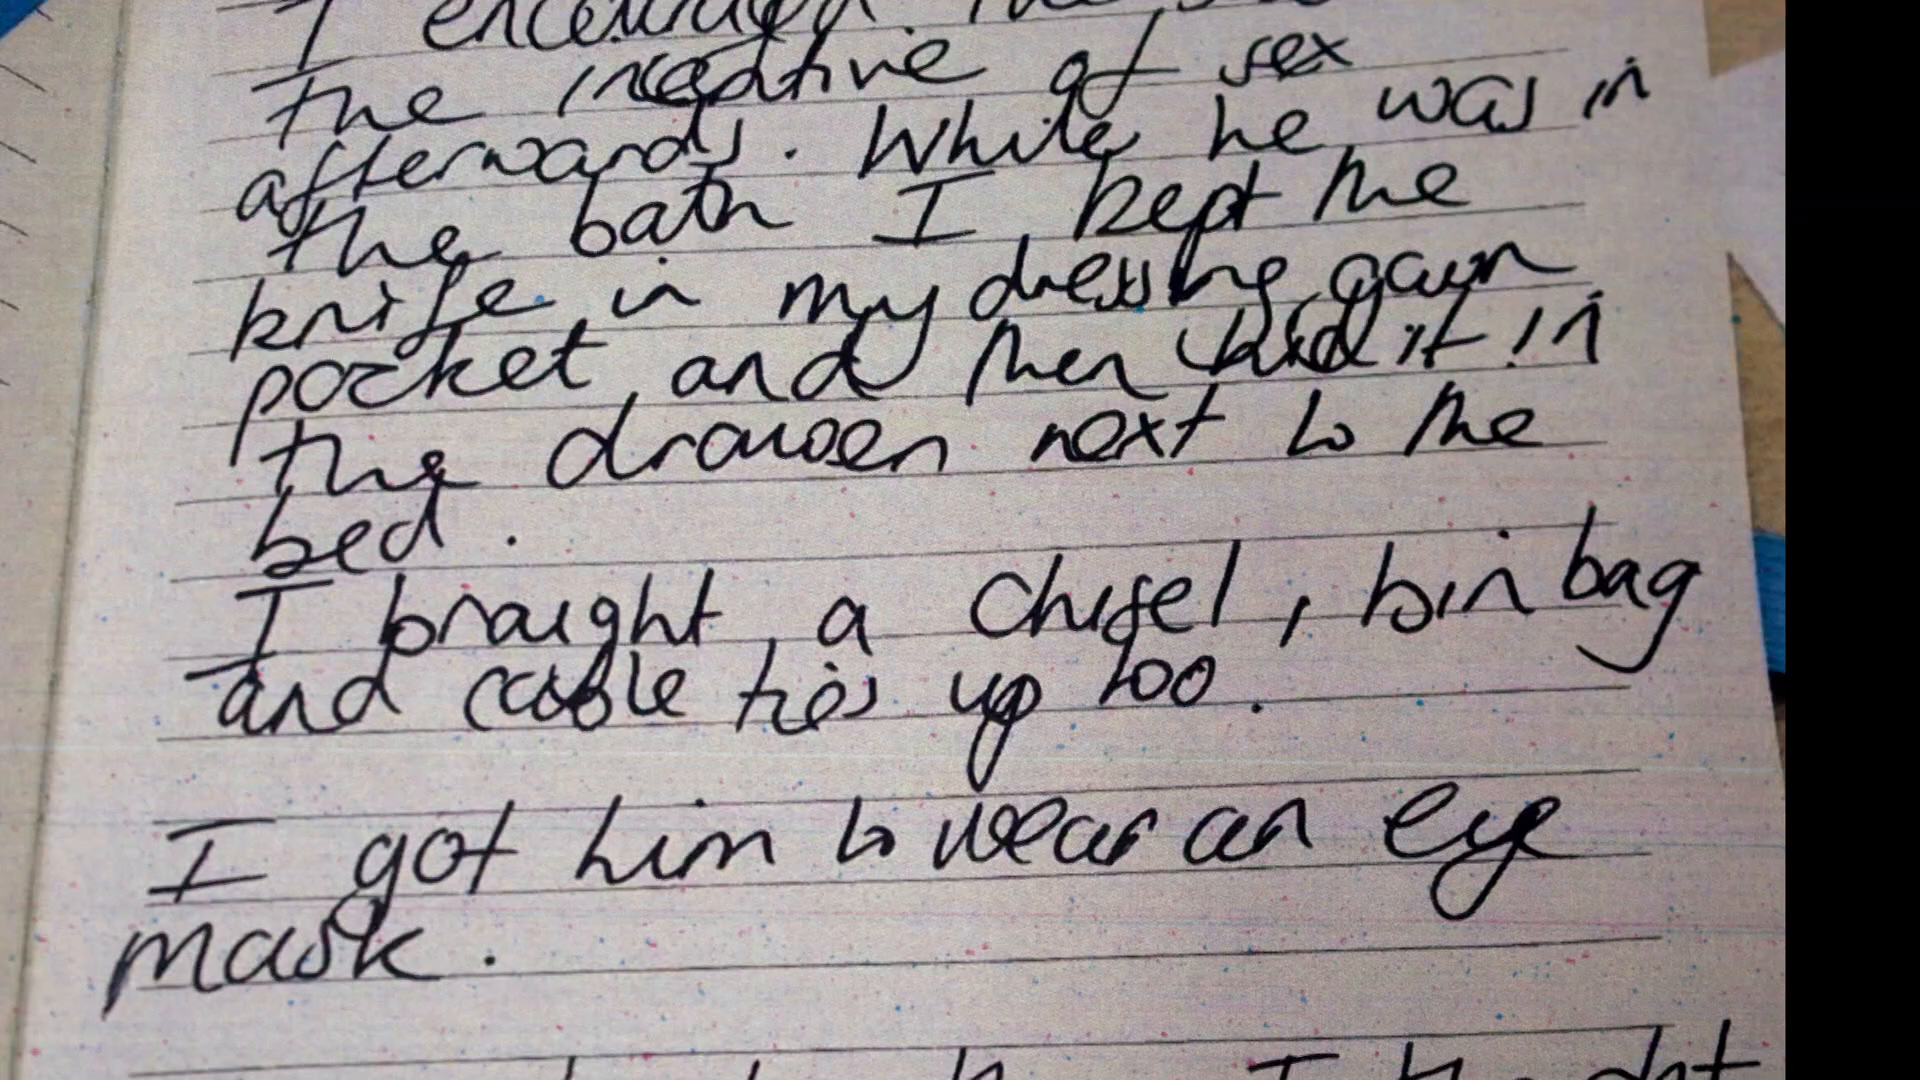 I encouraged
the incentive of sex
afterwards. While he was in
the bath I kept the
knife in my dressing gown
pocket and then hid it in
the drawer next to the
bed.
I brought a chisel, bin bag
and cable ties up too.
I got him to wear an eye
mask.